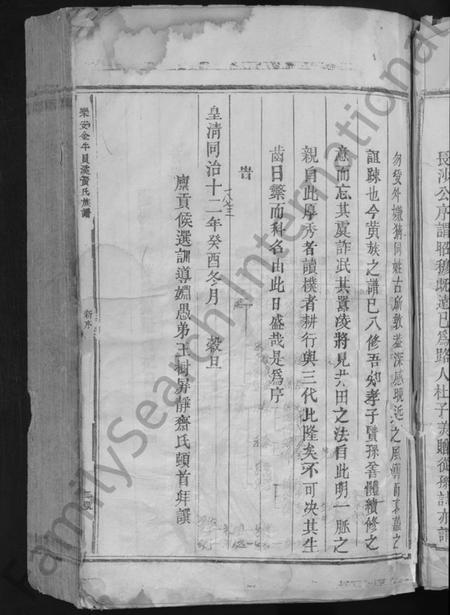 長沙公序謂昭穆既遠已為路人杜子美贈從孫詩亦謂
勿受外嫌猜同姓古所敦蓋深慨
之風
誼踈也今黄族之譜已八修吾知孝子賢孫善體續修之
意而忘其虞詐泯其囂凌將見井田之法自此明一脈之
親自此厚秀者讀樸者耕行與三代比隆矣不可决其生
齒日繁而科名由此日盛哉是為序
旹
皇清同治十二年癸酉冬月 穀旦
廩貢候選訓導婣愚弟王樹昇靜齋氏頓首拜譔
樂安金牛貝溪黄氏族譜
新序
FamilySearch International